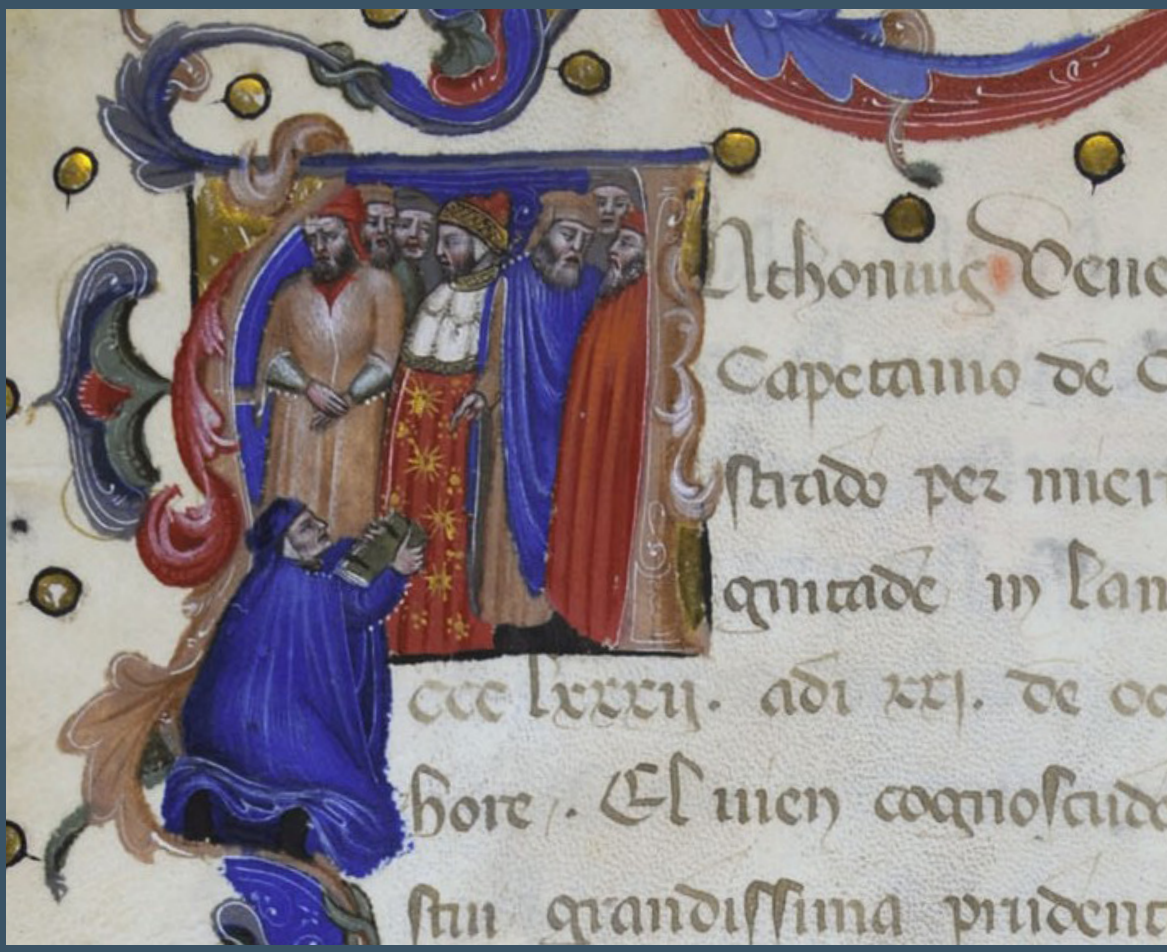 Anthonius Vene
Capetanio de C
per mier
gnitade in lan
ccc lxxxij. adi xxj. de oc
bore. El uien cognosciudo
stui grandissima prudent